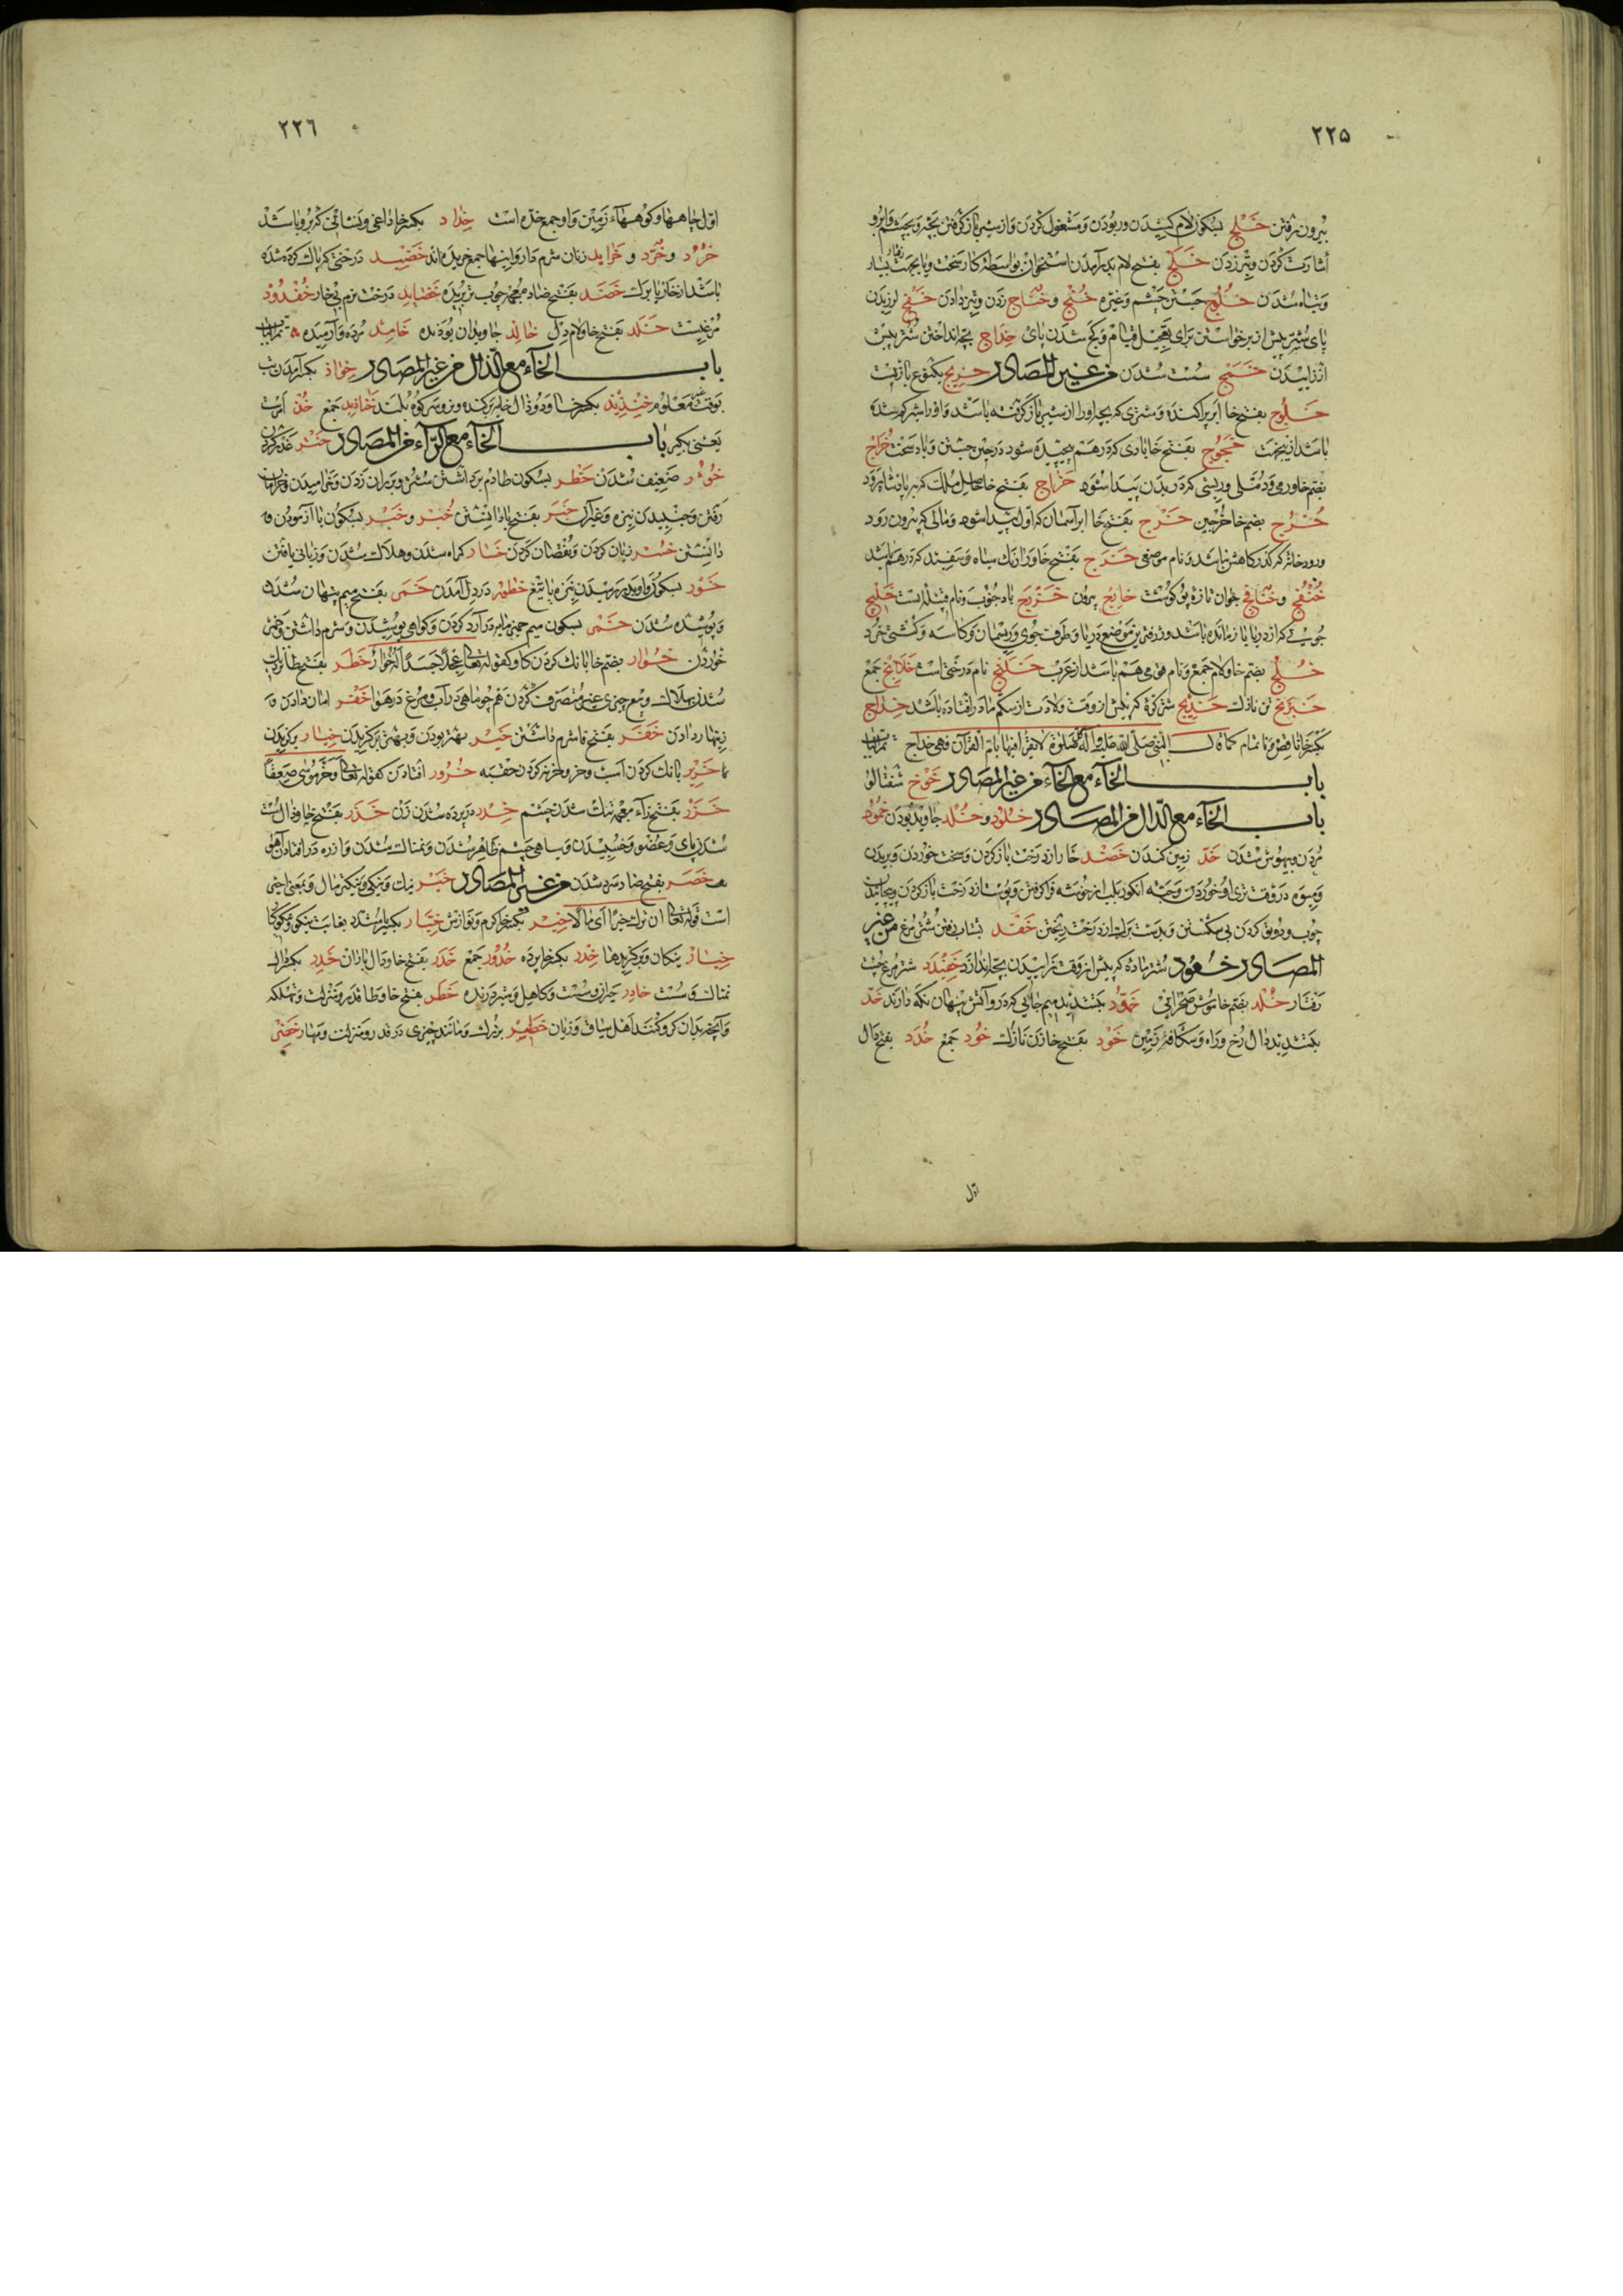 ٢٢٥
بیرون رفتن خلج بسکون لام کشیدن و ربودن و مشغول کردن و از شیر باز کرفتن بچه و بچشم و ابرو
اشارت کردن و نیزه زدن خلج بفتح لام بدرآمدن استخوان بواسطه کار سخت و یا بجهت رفتار بسیار
و تباه شدن خلوج جستن چشم و غیره خنج و خناج زدن و تیز دادن خفج لرزیدن
پای شتر پیش از برخواستن برای تعجیل قیام و کج شدن پای خداج بچه انداختن شتر پیش
از زاییدن خمج سست شدن من غیر المصادر خریج یکنوع بازیست
خلوج بفتح خا ابر پراکنده و شتری که بچه اورا از شیر باز کرفته باشد و اورا شیر کم شده
باشد ازین جهت خجوج بفتح خا بادی که درهم پیچیده شود در حین جستن و باد سخت خراج
بضم خا ورمی و دملی و ریشی که در بدن پیدا شود خراج بفتح خا حاصل ملک که بر پادشاه رود
خرج بضم خا خرجین خرج بفتح خا ابر آسمان که اول پیدا شود و مالی که بیرون رود
و رود خانه که کذرکاهش باشد و نام موضعی خرج بفتح خا و را رنک سیاه و سفید که درهم باشد
خنفج و خنافج جوان تازه پر کوشت خارج بیرون خزرج باد جنوب و نام قبیله است خلیج
جویی که از دریا باز مانده باشد و ژرفترین موضع دریا و طرف جوی و ریسمان و کاسه و کشتی خرد
خلج بضم خا و لام جمع و نام قومی هم باشد از عرب خلنج نام درختی است خلانج جمع
خبرنج تن نازک خدیج شتر کره که پیش از وقت ولادت از شکم مادر افتاده باشد خداج
بکسر خا ناقص و نا تمام کما قال النبی صلی الله علیه و آله کل صلوة لا یقرأ فیها بام القرآن فهی خداج
باب الخاء مع الخاء من غیر المصادر خوخ شفتالو
باب الخاء مع الدال من المصادر خلود و خلد جاوید بودن خمود
مردن و بیهوش شدن خد زمین کندن خضد خار از درخت باز کردن و سخت خوردن و بریدن
چوب و دونیم کردن بی شکستن خفد بشتاب رفتن شتر مرغ من غیر
المصادر خفود شتر ماده که پیش از وقت زاییدن بچه اندازد خفیدد شتر مرغ بچست
رفتار خلد بضم خا موش صحرایی خمود بتشدید میم جایی که درو آتش پنهان نکه دارند خد
بتشدید دال رخ و راه و شکافته زمین خود بفتح خا زن نازک خود جمع خدد بفتح دال
اول
٢٢٦
اول چاهها و کوهها زمین و او جمع خده است خداد بکسر خا داغی و نشانی که برو باشد
خرود و خرد و خراید زنان شرم دار و اینها جمع خریده اند خضید درختی که پاک کرده شده
باشد از خار یا برک خضد بفتح ضاد معجمه چوب تر بریده خضاید درخت نرم بی خار خفدود
مرغیست خلد بفتح خا و لام دل خالد جاویدان بودنده خامد مرده و آرمیده
باب الخاء مع الذال من غیر المصادر خواذ بکسر آمدن تب
بوقت غیر معلوم خنذیذ بکسر خا و دو ذال خایه برکنده و نر و سر کوه بلند خناذیذ جمع خذ امرست
یعنی بکیر باب الخاء مع الراء من المصادر ختر غدر کردن
خؤور ضعیف شدن خطر بسکون طا دم برداشتن شتر و بر ران زدن و خرامیدن
رفتن و جنبیدن نیزه و غیر آن خبر بفتح با دانستن خبر و خبر بسکون با آزمودن و
دانستن خسر زیان کردن و نقصان کردن خسار کمراه شدن و هلاک شدن و زیانی یافتن
خور بسکون واو تیز باتیغ خطور در دل آمدن خمر بفتح میم پنهان شدن
و پوشیده شدن خمر بسکون میم خمیر مایه در آرد کردن و کواهی پوشیدن و شرم داشتن و خمر
خوردن خوار بضم خا بانک کردن کاو کقوله تعالی عجلا جسدا له خوار خطر بفتح طا نزدیک
شدن بهلاک
زینهار دادن خفر بفتح فا شرم داشتن خیر بهتر بودن و بهتر برکزیدن خیار برکزیدن
خریر بانک کردن آب خرور افتادن کقوله تعالی و خر موسی صعقا
خزر بفتح زاء معجمه تنک شدن چشم خدر در پرده شدن زن خدر بفتح خا و دال سست
شدن پای و عضو و خسبیدن و سیاهی چشم ظاهر شدن
خصر بفتح صاد سرد شدن من غیر المصادر خیر نیک و نیکی و نیکتر و مال و بمعنی اختی
است قوله تعالی ان ترک خیرا ای مالا خیر بکسر خا کرم و نوازش خیار
خیار نیکان و برکزیدها خدر بکسر خا پرده خدور جمع خدر بفتح خا و دال باران خدر
نمناک و سست خادر حیران و سست و کاهل و شیر درنده خطر بفتح خا و طا قدر و منزلت و تهلکه
و آنچه بدان کرو کنند اهل سباق و زبان خطیر بزرک و مانند چیزی در قدر و منزلت و مهار